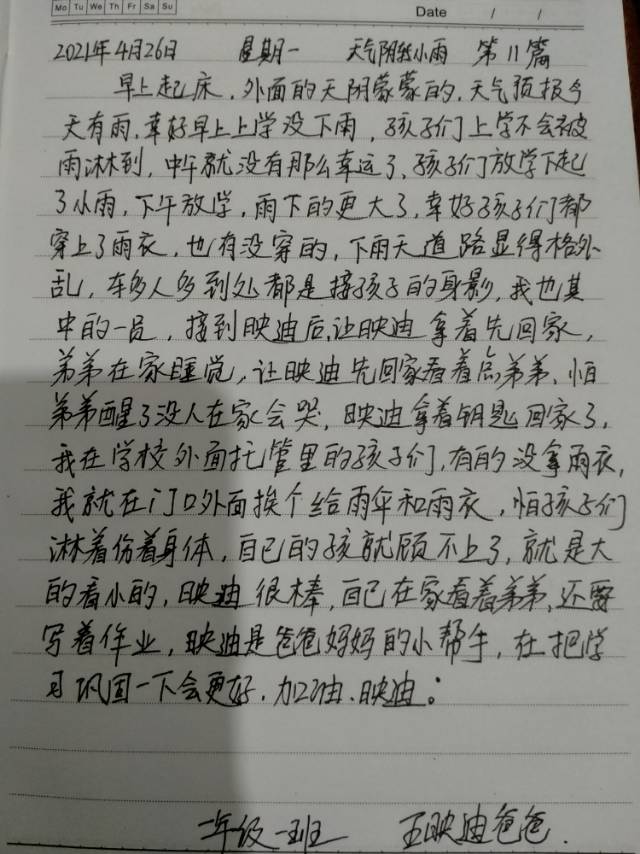 Mo Tu We Th Fr Sa Su
Date / /
2021年4月26日 星期一 天气阴转小雨 第11篇
早上起床，外面的天阴蒙蒙的，天气预报今
天有雨，幸好早上上学没下雨，孩子们上学不会被
雨淋到，中午就没有那么幸运了，孩子们放学下起
了小雨，下午放学，雨下的更大了，幸好孩子们都
穿上了雨衣，也有没穿的，下雨天道路显得格外
乱，车多人多到处都是接孩子的身影，我也其
中的一员，接到映迪后，让映迪拿着先回家，
弟弟在家睡觉，让映迪先回家看着点弟弟，怕
弟弟醒了没人在家会哭，映迪拿着钥匙回家了，
我在学校外面托管里的孩子们，有的没拿雨衣，
我就在门口外面挨个给雨伞和雨衣，怕孩子们
淋着伤着身体，自己的孩就顾不上了，就是大
的看小的，映迪很棒，自己在家看着弟弟，还要
写着作业，映迪是爸爸妈妈的小帮手，在把学
习巩固一下会更好，加油、映迪：
一年级一班 王映迪爸爸.